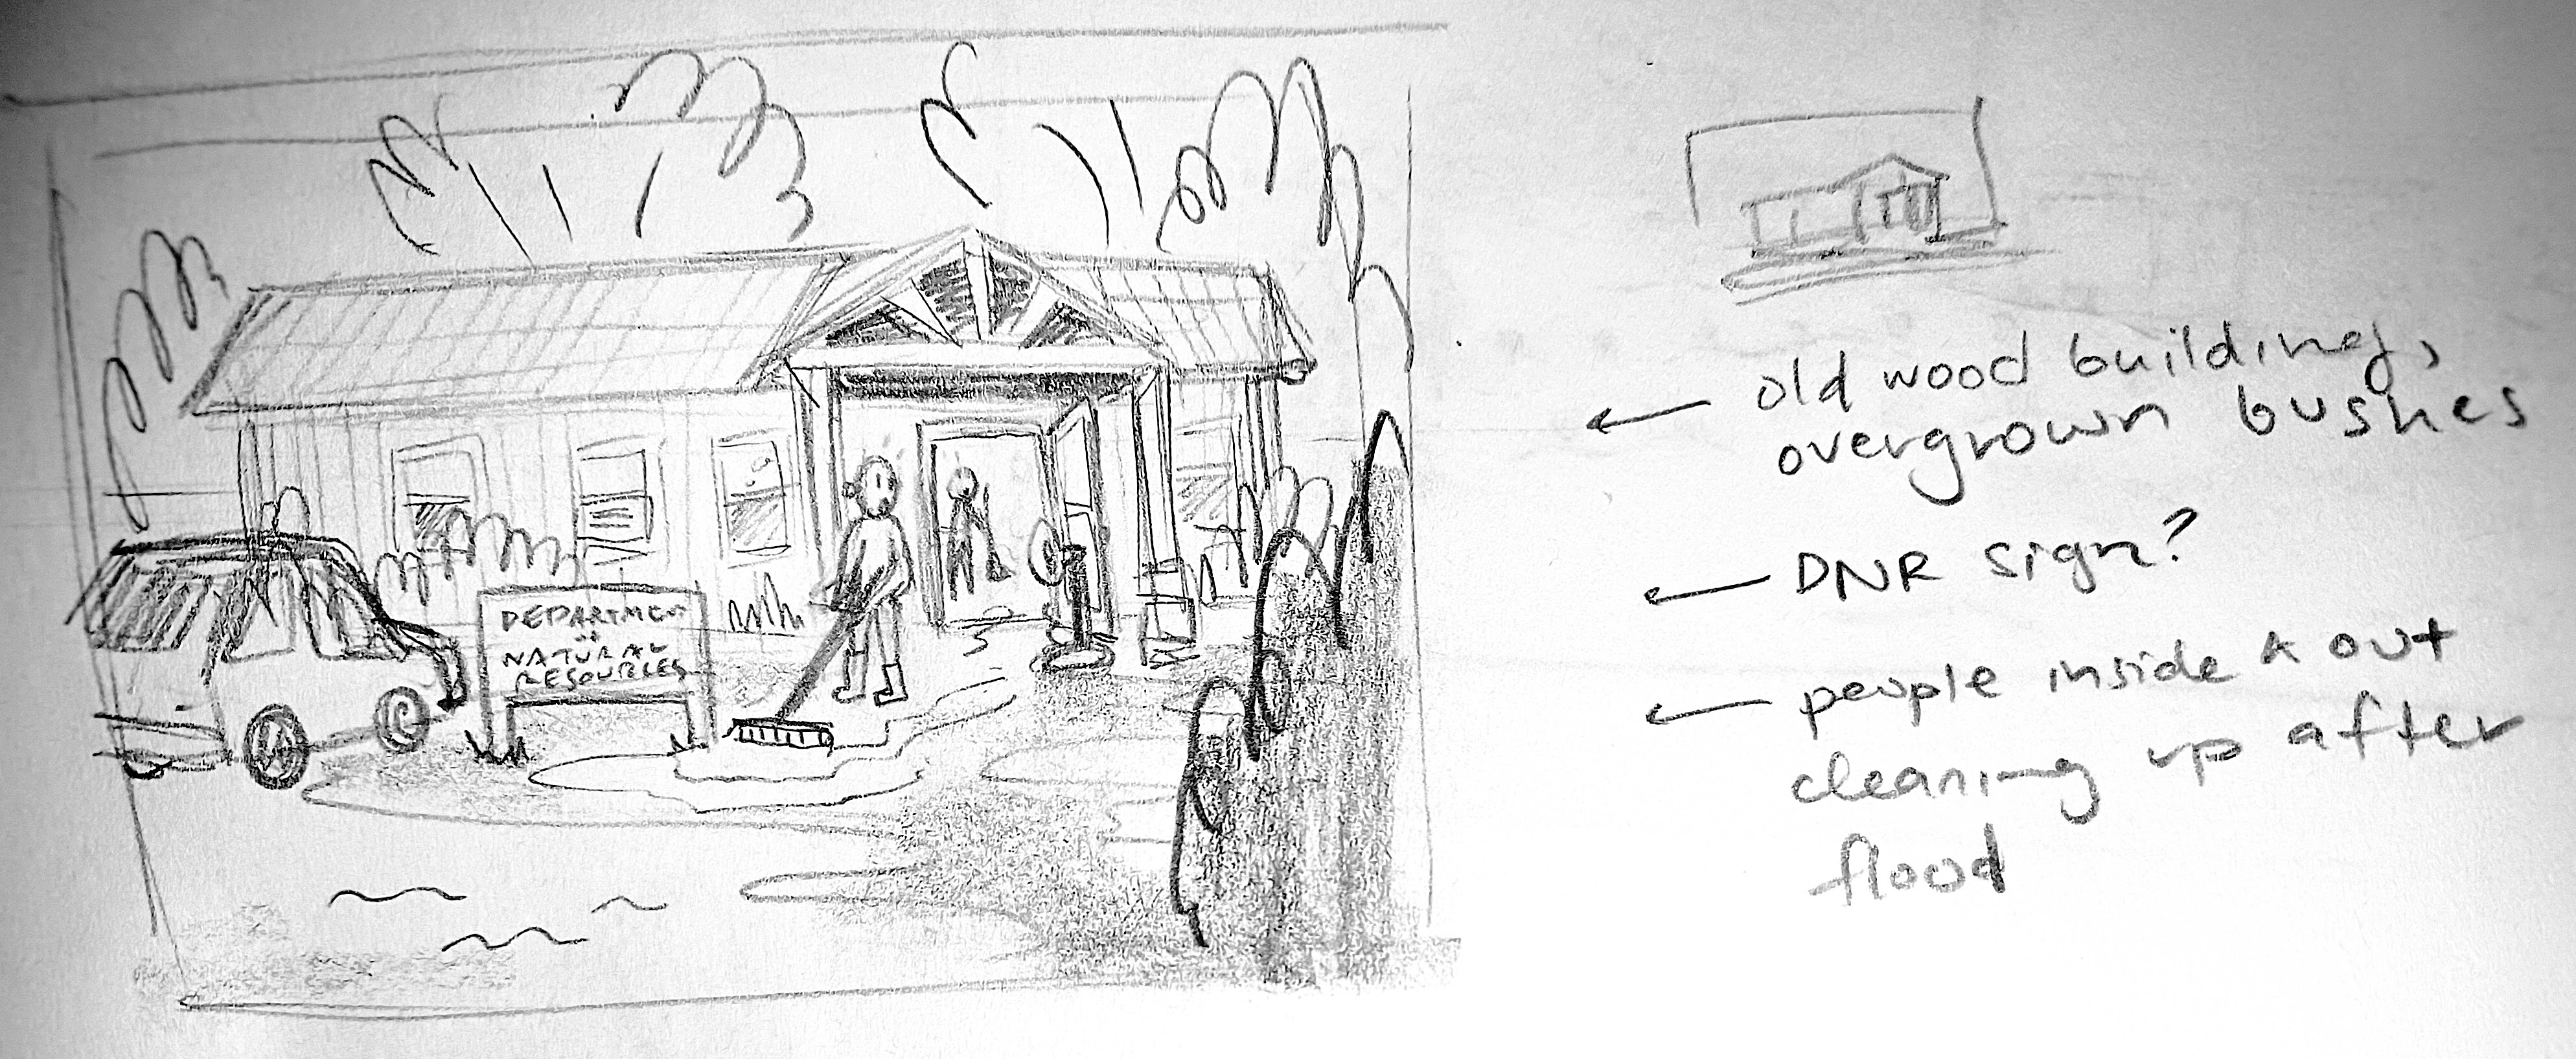 DEPARTMENT
OF
NATURAL
RESOURCES
old wood building,
overgrown bushes
DNR sign?
people inside & out
cleaning up after
flood